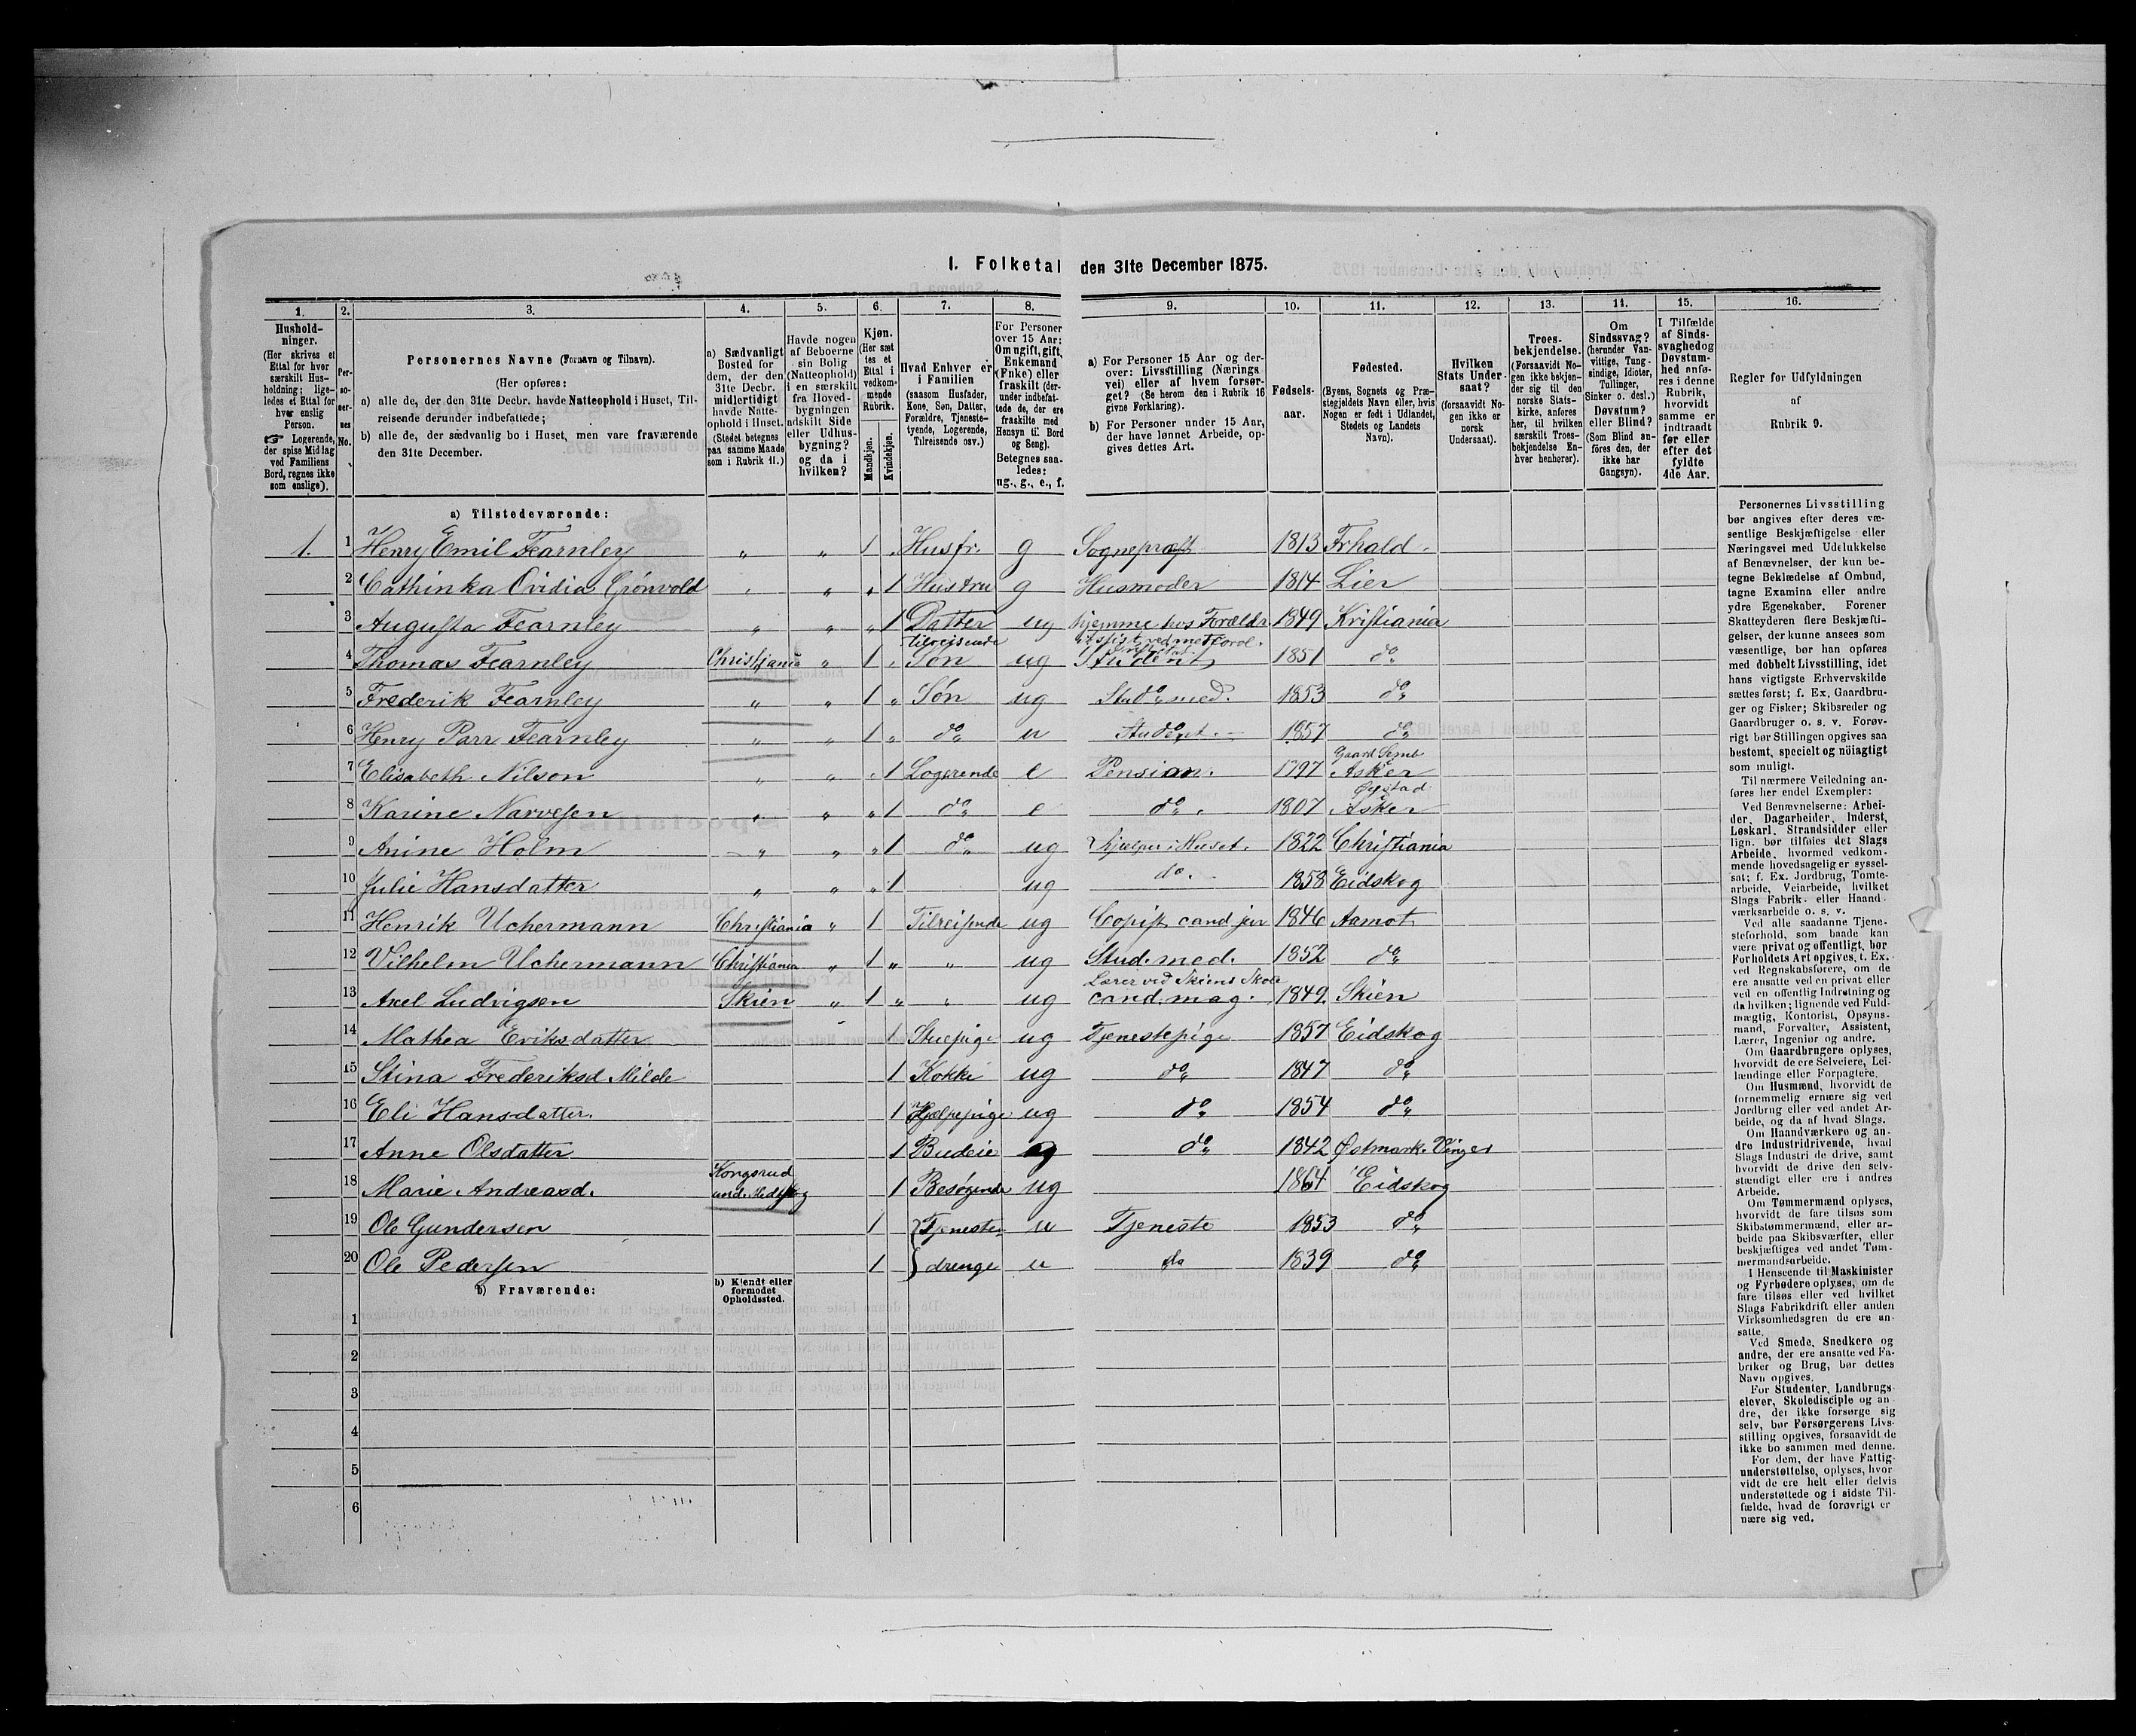 I. Folketal den 31te December 1875.
1. 2. 3. 4. 5. 6. 7. 8. 9. 10. 11. 12. 13. 14. 15. 16.
Hushold-
ninger.
(Her skrives et
Ettal for hver
særskilt Hus-
holdning; lige-
ledes et Ettal for
hver enslig
Person.
☞ Logerende,
der spise Middag
ved Familiens
Bord, regnes ikke
som enslige).
Per-
so-
ner-
nes
No.
Personernes Navne (Fornavn og Tilnavn).
(Her opføres:
a) alle de, der den 31te Decbr. havde Natteophold i Huset, Til-
reisende derunder indbefattede;
b) alle de, der sædvanlig bo i Huset, men vare fraværende
den 31te December.
a) Sædvanligt
Bosted for
dem, der den
31te Decbr.
midlertidigt
havde Natte-
ophold i Huset.
(Stedet betegnes
paa samme Maade
som i Rubrik 11.)
Havde nogen
af Beboerne
sin Bolig
(Natteophold)
i en særskilt
fra Hoved-
bygningen
adskilt Side
eller Udhus-
bygning?
og da i
hvilken?
Kjøn.
(Her sæt
tes et
Ettal i
vedkom-
mende
Rubrik.
Mandkjøn.
Kvindekjøn.
Hvad Enhver er
i Familien
(saasom Husfader,
Kone, Søn, Datter,
Forældre, Tjeneste-
tyende, Logerende,
Tilreisende osv.)
For Personer
over 15 Aar:
Om ugift, gift,
Enkemand
(Enke) eller
fraskilt (der-
under indbefat-
tede de, der ere
fraskilte med
Hensyn til Bord
og Seng).
Betegnes saa-
ledes:
ug., g., e., f.
a) For Personer 15 Aar og der-
over: Livsstilling (Nærings
vei) eller af hvem forsør-
get? (Se herom den i Rubrik 16
givne Forklaring).
b) For Personer under 15 Aar,
der have lønnet Arbeide, op-
gives dettes Art.
Fødsels-
aar.
Fødested.
(Byens, Sognets og Præ-
stegjeldets Navn eller, hvis
Nogen er født i Udlandet,
Stedets og Landets
Navn).
Hvilken
Stats Under-
saat?
(forsaavidt No-
gen ikke er
norsk
Undersaat).
Troes-
bekjendelse.
(Forsaavidt No-
gen ikke bekjen-
der sig til den
norske Stats-
kirke, anføres
her, til hvilken
særskilt Troes-
bekjendelse En-
hver henhører).
Om
Sindssvag?
(herunder Van-
vittige, Tung-
sindige, Idioter,
Tullinger,
Sinker o. desl.)
Døvstum?
eller Blind?
(Som Blind an-
føres den, der
ikke har
Gangsyn).
I Tilfælde
af Sinds-
svaghed og
Døvstum-
hed anfø-
res i denne
Rubrik,
hvorvidt
samme er
indtraadt
før eller
efter det
fyldte
4de Aar.
Regler for Udfyldningen
af
Rubrik 9.
a) Tilstedeværende:
1. 1 Henry Emil Fearnley „ „ 1 „ Husfr. g Sognepræst 1813 Frhald.
2 Cathinka Ovidia Grönvold „ „ „ 1 Hustru g Husmoder 1814 Lier
3 Augusta Fearnley „ „ „ 1 Datter ug hjemme hos Forældr 1849 Kristiania
tilreisende
4 Thomas Fearnley Christiania „ 1 „ Søn ug Student 1851 do
5 Frederik Fearnley „ „ 1 „ Søn ug Stud. med. 1853 do
6 Henry Parr Fearnley „ „ 1 „ do u Student 1857 do
Gaard Semb
7 Elisabeth Nilson „ „ „ 1 Logerende e Pension. 1797 Asker
8 Karine Narvesen „ „ „ 1 do e do. 1807 Asker
9 Anine Holm „ „ „ 1 do ug hjælper i Huset. 1822 Christiania
10 Julie Hansdatter „ „ „ 1 ug do. 1858 Eidskog
11 Henrik Uchermann Christiania „ 1 Tilreisende ug Copist cand jur 1846 Aamot
12 Vilhelm Uchermann Christiania „ 1 „ „ ug Stud. med. 1852 do
Lærer ved Skiens Skole
13 Axel Ludvigsen Skien „ 1 „ „ ug cand. mag. 1849. Skien
14 Mathea Eriksdatter 1 Stuepige ug Tjenestepige 1857 Eidskog
15 Stina Frederiksd Milde 1 Kokke ug do 1847 do
16 Eli Hansdatter. 1 Hjælpepige ug do 1854 do
17 Anne Olsdatter 1 Budeie g do 1842 Østmark. Vinger
Kongsrud
18 Marie Andreasd. und. Medskog 1 Besøgende ug 1864 Eidskog
19 Ole Gundersen 1 Tjeneste- u Tjeneste 1853 do
20 Ole Pedersen 1 drenge u do 1839 do
b) Fraværende:
b) Kjendt eller
formodet
Opholdssted.
1
2
3
4
5
6
Personernes Livsstilling
bør angives efter deres væ-
sentlige Beskjæftigelse eller
Næringsvei med Udelukkelse
af Benævnelser, der kun be-
tegne Beklædelse af Ombud,
tagne Examina eller andre
ydre Egenskaber. Forener
Skatteyderen flere Beskjæfti-
gelser, der kunne ansees som
væsentlige, bør han opføres
med dobbelt Livsstilling, idet
hans vigtigste Erhvervskilde
sættes først; f. Ex. Gaardbru-
ger og Fisker; Skibsreder og
Gaardbruger o. s. v. Forøv-
rigt bør Stillingen opgives saa
bestemt, specielt og nöiagtigt
som muligt.
Til nærmere Veiledning an-
føres her endel Exempler:
Ved Benævnelserne: Arbei-
der, Dagarbeider, Inderst,
Løskarl, Strandsidder eller
lign. bør tilføies det Slags
Arbeide, hvormed vedkom-
mende hovedsagelig er syssel-
sat; f. Ex. Jordbrug, Tomte-
arbeide, Veiarbeide, hvilket
Slags Fabrik- eller Haand
værksarbeide o. s. v.
Ved alle saadanne Tjene-
steforhold, som baade kan
være privat og offentligt, bør
Forholdets Art opgives, t. Ex.
ved Regnskabsførere, om de
ere ansatte ved en privat eller
ved en offentlig Indretning og
da hvilken; lignende ved Fuld-
mægtig, Kontorist, Opsyns-
mand, Forvalter, Assistent,
Lærer, Ingeniør og andre.
Om Gaardbrugere oplyses,
hvorvidt de ere Selveiere, Lei-
lændinge eller Forpagtere.
Om Husmænd, hvorvidt de
fornemmelig ernære sig ved
Jordbrug eller ved andet Ar-
beide, og da af hvad Slags.
Om Haandværkere og an-
dre Industridrivende, hvad
Slags Industri de drive, samt
hvorvidt de drive den selv-
stændigt eller ere i andres
Arbeide.
Om Tømmermænd oplyses,
hvorvidt de fare tilsøs som
Skibstømmermænd, eller ar-
beide paa Skibsværfter, eller
beskjæftiges ved andet Tøm-
mermandsarbeide.
I Henseende til Maskinister
og Fyrbødere oplyses, om de
fare tilsøs eller ved hvilket
Slags Fabrikdrift eller anden
Virksomhedsgren de ere an-
satte.
Ved Smede, Snedkere og
andre, der ere ansatte ved Fa-
briker og Brug, bør dettes
Navn opgives.
For Studenter, Landbrugs-
elever, Skoledisciple og an-
dre, der ikke forsørge sig
selv, bør Forsørgerens Livs-
stilling opgives, forsaavidt de
ikke bo sammen med denne.
For dem, der have Fattig-
understøttelse, oplyses, hvor
vidt de ere helt eller delvis
understøttede og i sidste Til-
fælde, hvad de forøvrigt er
nære sig ved.